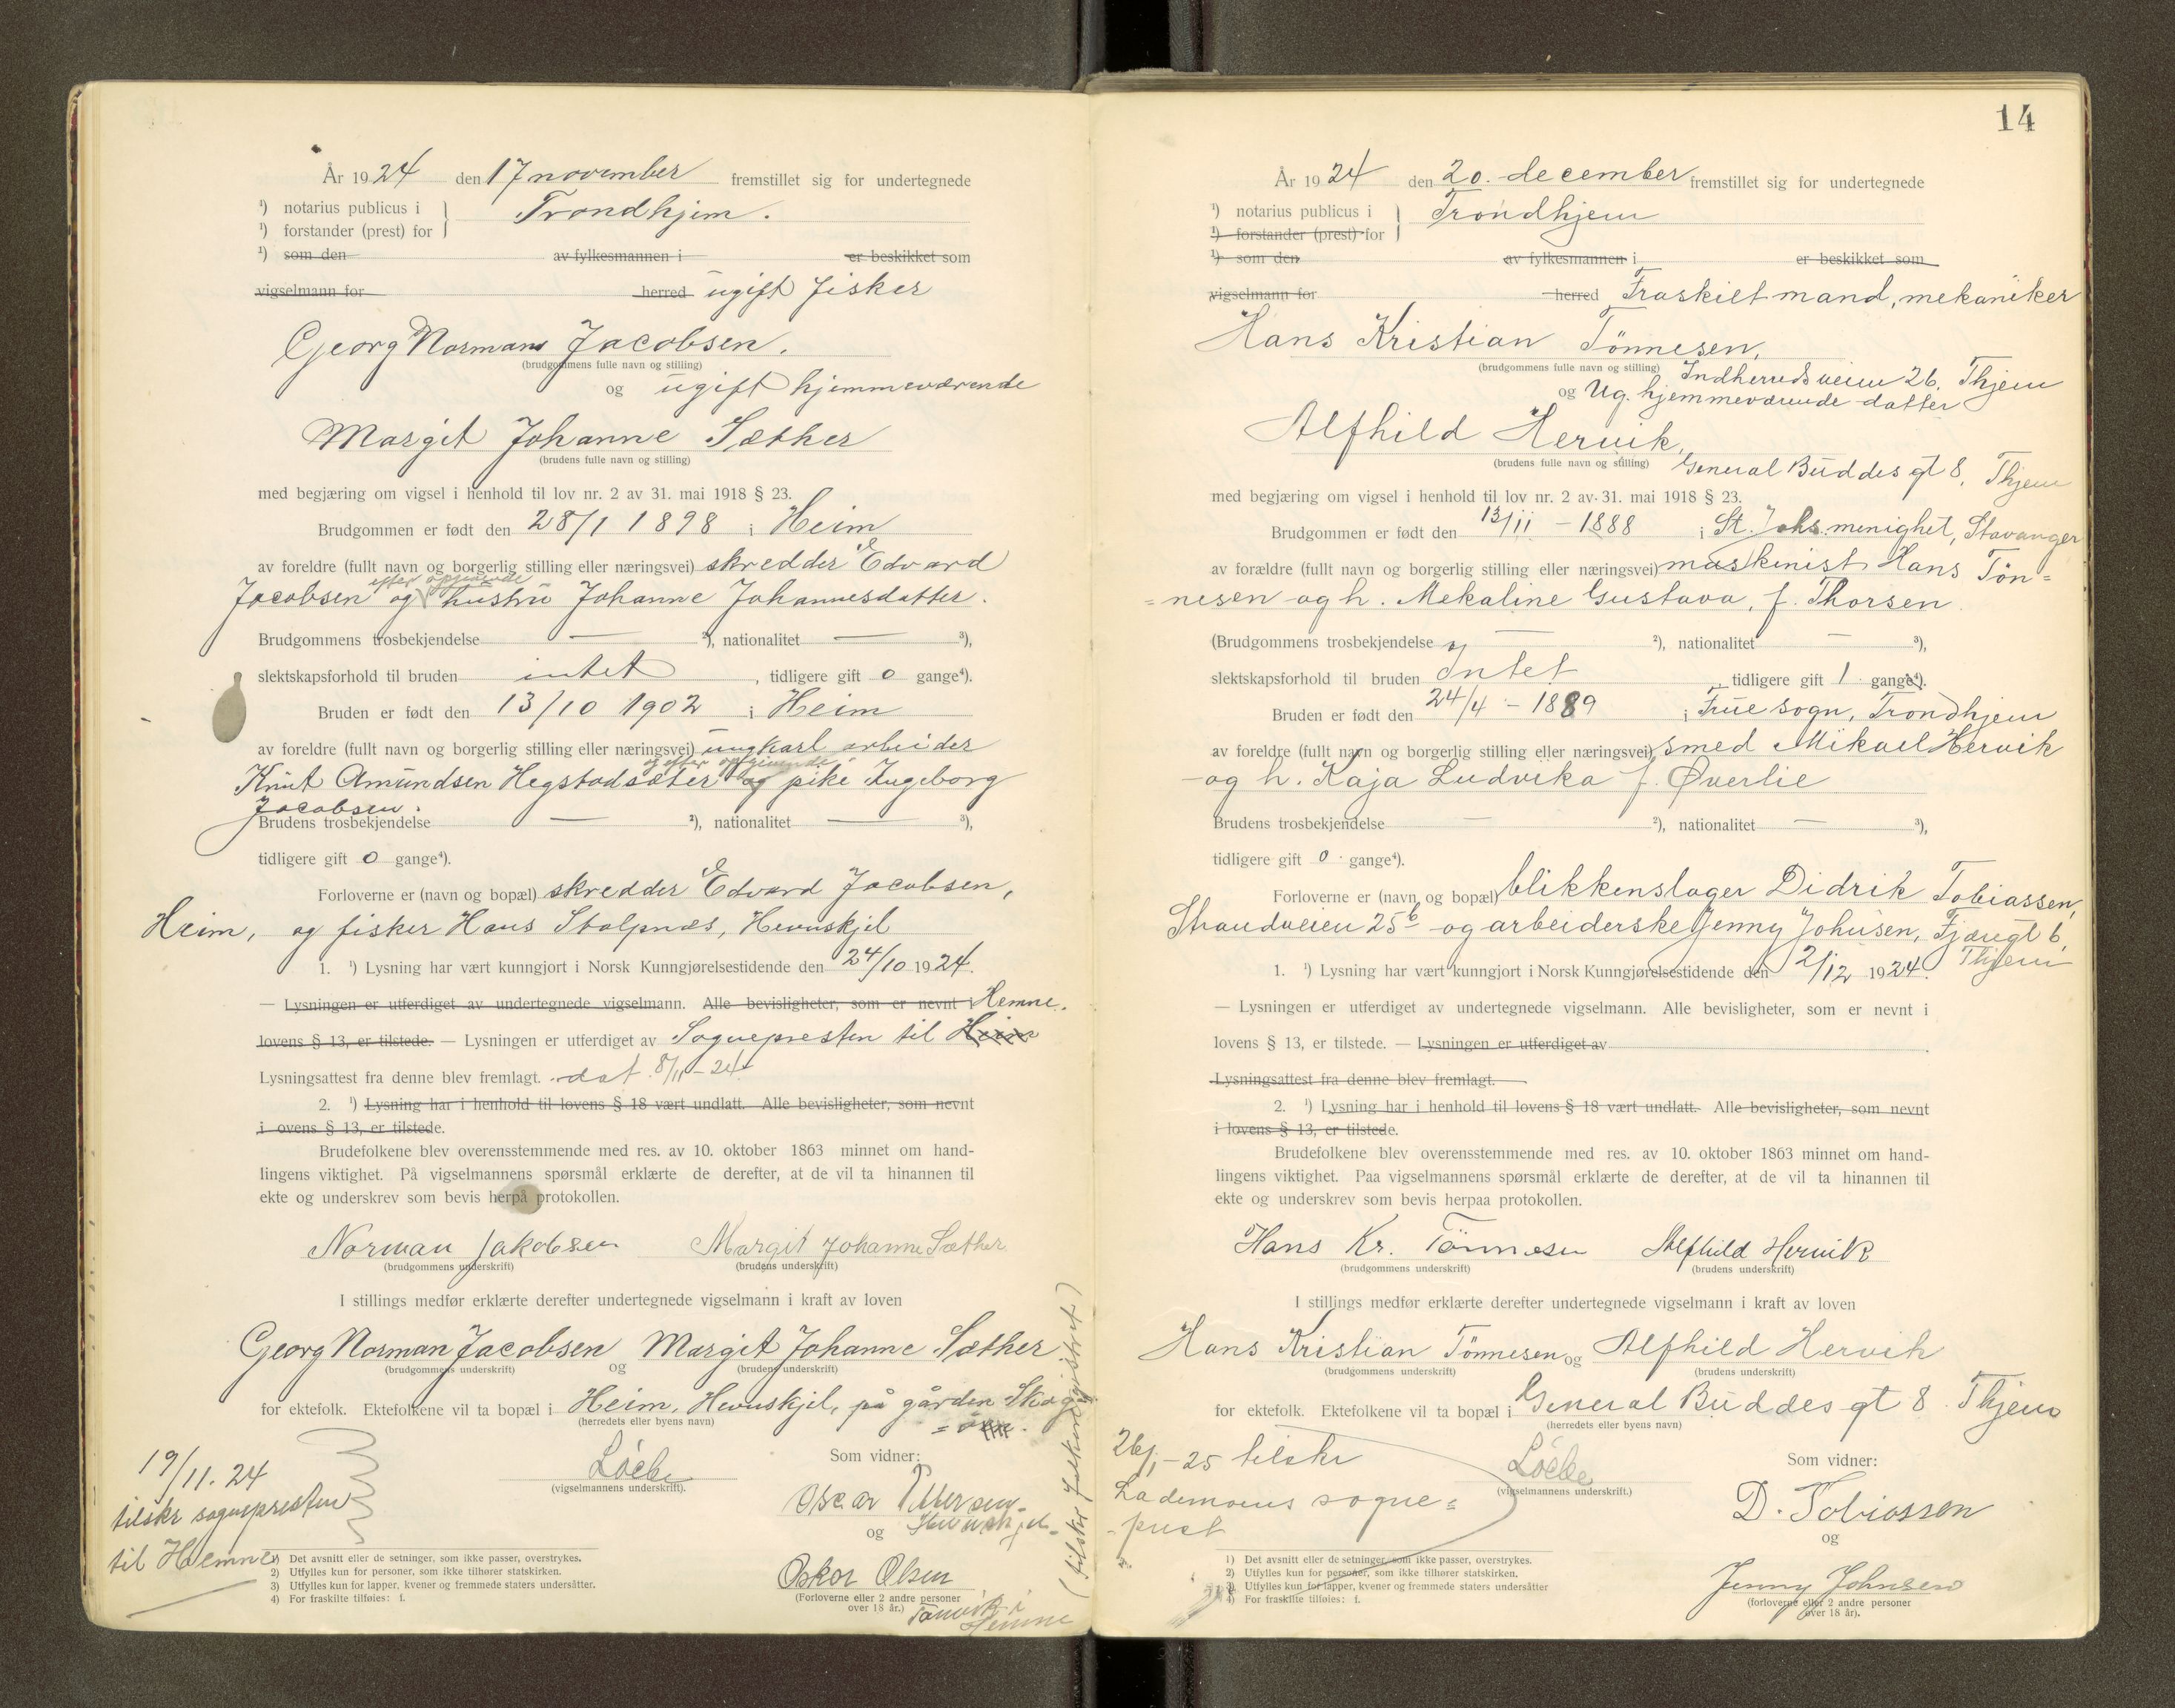 År 1924 den 17 november fremstillet sig for undertegnede
¹) notarius publicus i
Trondhjem.
¹) forstander (prest) for
¹) som den av fylkesmannen i er beskikket som
vigselmann for herred ugift fisker
Georg Norman Jacobsen.
(brudgommens fulle navn og stilling)
og ugift hjemmeværende
Margit Johanne Sæther
(brudens fulle navn og stilling)
med begjæring om vigsel i henhold til lov nr. 2 av 31. mai 1918 § 23.
Brudgommen er født den 28/1 1898 i Heim
av foreldre (fullt navn og borgerlig stilling eller næringsvei) skredder E Edvard
efter opgivende
Jacobsen og hustru Johanne Johannesdatter.
Brudgommens trosbekjendelse — ²), nationalitet — ³),
slektskapsforhold til bruden intet, tidligere gift 0 gange⁴).
Bruden er født den 13/10 1902 i Heim
av foreldre (fullt navn og borgerlig stilling eller næringsvei) ungkarl arbeider
og efter opgivende
Knut Amundsen Hegstadsæter og pike Ingeborg
Jacobsen.
Brudens trosbekjendelse — ²), nationalitet — ³),
tidligere gift 0 gange⁴).
Forloverne er (navn og bopæl) skredder E Edvard Jacobsen,
Heim, og fisker Hans Stolpnes, Hevnskjel
1. ¹) Lysning har vært kunngjort i Norsk Kunngjørelsestidende den 24/10 1924.
— Lysningen er utferdiget av undertegnede vigselmann. Alle bevisligheter, som er nevnt i Hemne.
lovens § 13, er tilstede. — Lysningen er utferdiget av Sognepresten til Heim
Lysningsattest fra denne blev fremlagt. dat. 8/11-24
2. ¹) Lysning har i henhold til lovens § 18 vært undlatt. Alle bevisligheter, som nevnt
i ovens § 13, er tilstede.
Brudefolkene blev overensstemmende med res. av 10. oktober 1863 minnet om hand-
lingens viktighet. På vigselmannens spørsmål erklærte de derefter, at de vil ta hinannen til
ekte og underskrev som bevis herpå protokollen.
Norman Jakobsen Margit Johanne Sæther
(brudgommens underskrift) (brudens underskrift)
I stillings medfør erklærte derefter undertegnede vigselmann i kraft av loven
Georg Norman Jacobsen og Margit Johanne Sæther
(brudgommens underskrift) (brudens underskrift)
for ektefolk. Ektefolkene vil ta bopæl i Heim, Hevnskjel, på gården Skog
(herredets eller byens navn)
Som vidner:
Løcke
(vigselmannens underskrift).
Oscar Pettersen
Hevnskjel
og
Oskar Olsen
(Forloverne eller 2 andre personer
over 18 år.)
i
Hemne
19/11.24
tilskr sognepresten
til Hemne
(tilskr folkeregistret)
1) Det avsnitt eller de setninger, som ikke passer, overstrykes.
2) Utfylles kun for personer, som ikke tilhører statskirken.
3) Utfylles kun for lapper, kvener og fremmede staters undersåtter.
4) For fraskilte tilføies: f.
14
År 1924 den 20. december fremstillet sig for undertegnede
¹) notarius publicus i
Trondhjem
¹) forstander (prest) for
¹) som den av fylkesmannen i er beskikket som
vigselmann for herred Fraskilt mand, mekaniker
Hans Kristian Tönnesen,
(brudgommens fulle navn og stilling) Indherredsveien 26, Thjem
og Ug. hjemmeværende datter
Alfhild Hervik,
(brudens fulle navn og stilling) General Buddes gt 8, Thjem
med begjæring om vigsel i henhold til lov nr. 2 av 31. mai 1918 § 23.
Brudgommen er født den 13/11 - 1888 i St. Johs. menighet, Stavanger
av forældre (fullt navn og borgerlig stilling eller næringsvei) maskinist Hans Tön=
=nesen og h. Mekaline Gustava, f. Thorsen
(Brudgommens trosbekjendelse — ²), nationalitet — ³),
slektskapsforhold til bruden Intet, tidligere gift 1 gange⁴).
Bruden er født den 24/4 - 1889 i Frue sogn, Trondhjem
av foreldre (fullt navn og borgerlig stilling eller næringsvei) smed Mikael Hervik
og h. Kaja Ludvika f. Øverlie
Brudens trosbekjendelse — ²), nationalitet — ³),
tidligere gift 0 gange⁴).
Forloverne er (navn og bopæl) blikkenslager Didrik Tobiassen,
Strandveien 25b og arbeiderske Jenny Johnsen, Fjæregt 6,
Thjem
1. ¹) Lysning har vært kunngjort i Norsk Kunngjørelsestidende den 2/12 1924.
— Lysningen er utferdiget av undertegnede vigselmann. Alle bevisligheter, som er nevnt i
lovens § 13, er tilstede. — Lysningen er utferdiget av
Lysningsattest fra denne blev fremlagt.
2. ¹) Lysning har i henhold til lovens § 18 vært undlatt. Alle bevisligheter, som nevnt
i lovens § 13, er tilstede.
Brudefolkene blev overensstemmende med res. av 10. oktober 1863 minnet om hand-
lingens viktighet. Paa vigselmannens spørsmål erklærte de derefter, at de vil ta hinannen til
ekte og underskrev som bevis herpaa protokollen.
Hans Kr. Tönnesen Alfhild Hervik
(brudgommens underskrift) (brudens underskrift)
I stillings medfør erklærte derefter undertegnede vigselmann i kraft av loven
Hans Kristian Tönnesen og Alfhild Hervik
(brudgommens underskrift) (brudens underskrift)
for ektefolk. Ektefolkene vil ta bopæl i General Buddes gt 8 Thjem
(herredets eller byens navn)
26/1-25 tilskr
Lademoens sogne=
-prest
Løcke
(vigselmannens underskrift.)
Som vidner:
D. Tobiassen
og
Jenny Johnsen
(forloverne eller 2 andre personer
over 18 år).
1) Det avsnitt eller de setninger, som ikke passer, overstrykes.
2) Utfylles kun for personer, som ikke tilhører statskirken.
3) Utfylles kun for lapper, kvener og fremmede staters undersåtter
4) For fraskilte tilføies: f.